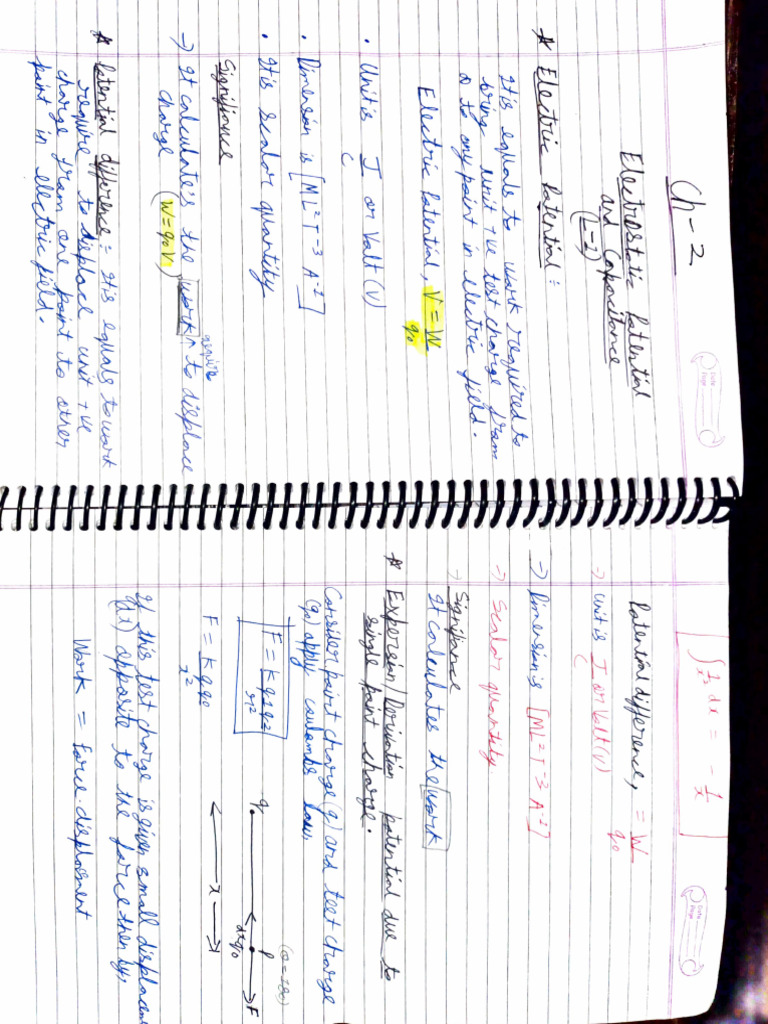 Ch-2
Electrostatic Potential
and Capacitance
(L-2)
* Electric Potential :
It is equals to work required to
bring unit +ve test charge from
∞ to any point in electric field.
Electric Potential, V = W/q₀
• Unit is J/C or Volt (V)
• Dimension is [ML²T⁻³A⁻¹]
• It is scalar quantity
Significance
→ It calculates the work require to displace
charge (W = q₀V)
* Potential difference : It is equals to work
require to displace unit +ve
charge from one point to other
point in electric field.
Date
Page
∫ 1/x² dx = - 1/x
Date
Page
Potential difference, = W/q₀
→ Unit is J/C or Volt (V)
→ Dimension is [ML²T⁻³A⁻¹]
→ Scalar quantity.
Signifiance
→ It calculates the work
* Expersion/Derivation potential due to
single point charge.
Consider point charge (q) and test charge
(q₀) apply coulombs law,
F = K q1q2/r²
F = K q q₀/x²
(θ=180)
q
P
F
dx
q₀
x
If this test charge is given small displacement
(dx) opposite to the force then by,
Work = force . displacement